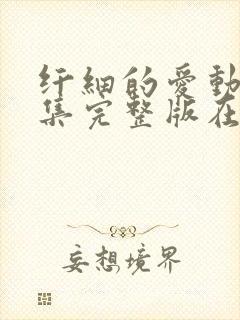 纤細的愛動
集完整版在
妄想境界